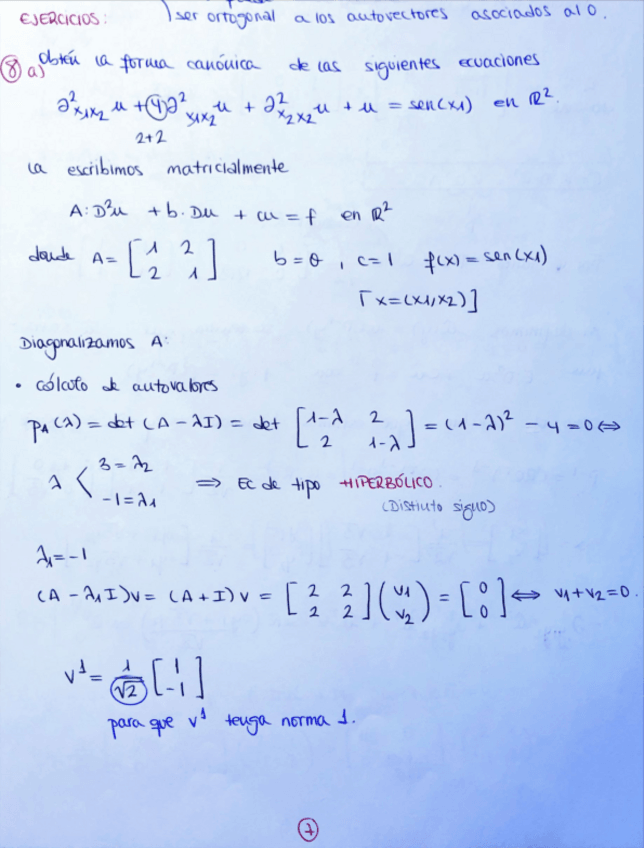 EJERCICIOS: ser ortogonal a los autovectores asociados al 0.
⑧ a) Obtén la forma canónica de las siguientes ecuaciones
∂²x1x2 u + ④∂²x1x2 u + ∂²x2x2 u + u = sen(x1) en ℝ².
2+2
La escribimos matricialmente
A:D²u + b·Du + cu = f en ℝ²
donde A = [1 2; 2 1] b = θ, c=1 f(x) = sen(x1)
[x=(x1,x2)]
Diagonalizamos A:
• cálculo de autovalores
pA(λ) = det(A-λI) = det [1-λ 2; 2 1-λ] = (1-λ)² - 4 = 0 ⇔
λ < 3 = λ2
-1 = λ1 ⇒ Ec de tipo HIPERBÓLICO.
(Distinto signo)
λ1 = -1
(A - λ1I)v = (A+I)v = [2 2; 2 2](v1; v2) = [0; 0] ⇔ v1+v2=0.
v¹ = 1/√2 [1; -1]
para que v¹ tenga norma 1.
⑦